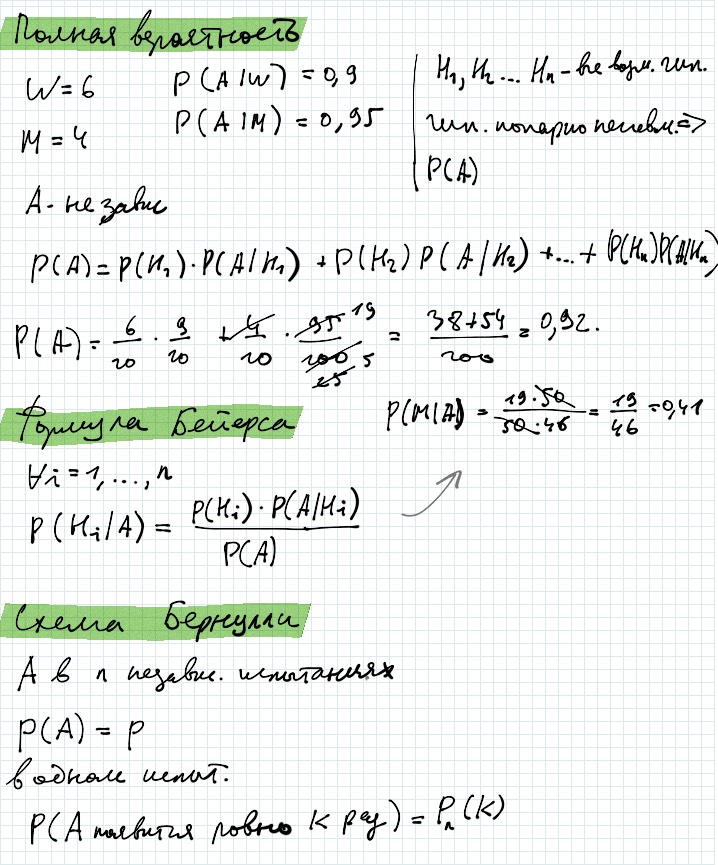 Полная вероятность
W = 6 P(A|W) = 0,9
M = 4 P(A|M) = 0,95
A - независ
H₁, H₂ ... Hₙ - все возм. гип.
гип. попарно несовм. =>
P(A)
P(A) = P(H₁)·P(A/H₁) + P(H₂) P(A/H₂) +...+ P(Hₙ)P(A/Hₙ)
P(A) = 6/10 · 9/10 + 4/10 · 95/100 19 5 25 = 38+54/100 = 0,92.
P(M|A) = 19·50/50·46 = 19/46 = 0,41
Формула Бейерса
∀i = 1, ..., n
P(Hᵢ/A) = P(Hᵢ)·P(A/Hᵢ)/P(A)
Схема Бернулли
A в n независ. испытаниях
P(A) = p
в одном испыт.
P(A появится ровно k раз) = Pₙ(k)